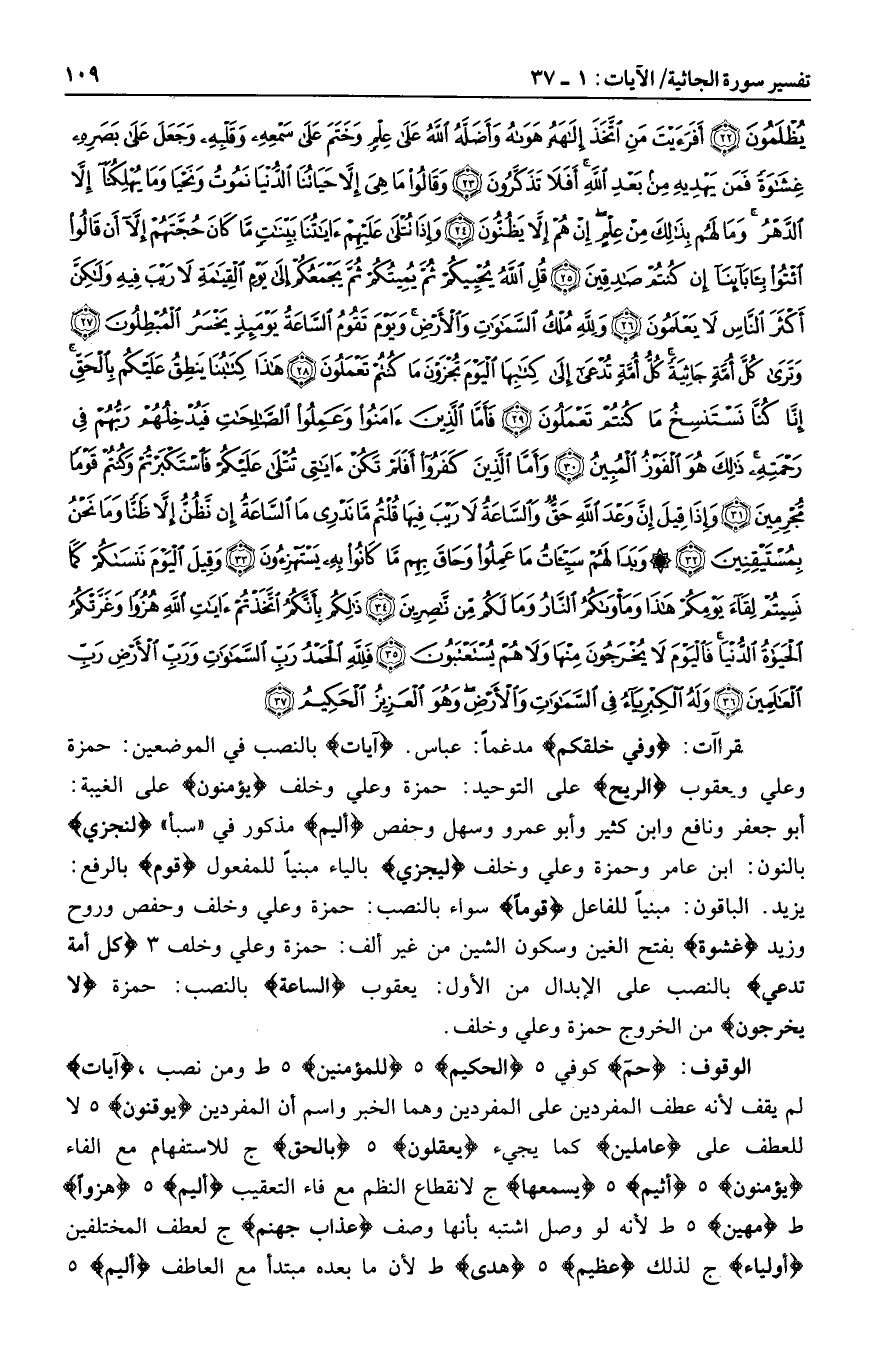 تفسير سورة الجاثية/ الآيات: ١ ـ ٣٧
١٠٩
يُظْلَمُونَ ﴿٢٢﴾ أَفَرَءَيْتَ مَنِ ٱتَّخَذَ إِلَٰهَهُۥ هَوَىٰهُ وَأَضَلَّهُ ٱللَّهُ عَلَىٰ عِلْمٍ وَخَتَمَ عَلَىٰ سَمْعِهِۦ وَقَلْبِهِۦ وَجَعَلَ عَلَىٰ بَصَرِهِۦ
غِشَٰوَةً فَمَن يَهْدِيهِ مِنۢ بَعْدِ ٱللَّهِ ۚ أَفَلَا تَذَكَّرُونَ ﴿٢٣﴾ وَقَالُوا۟ مَا هِىَ إِلَّا حَيَاتُنَا ٱلدُّنْيَا نَمُوتُ وَنَحْيَا وَمَا يُهْلِكُنَآ إِلَّا
ٱلدَّهْرُ ۚ وَمَا لَهُم بِذَٰلِكَ مِنْ عِلْمٍ ۖ إِنْ هُمْ إِلَّا يَظُنُّونَ ﴿٢٤﴾ وَإِذَا تُتْلَىٰ عَلَيْهِمْ ءَايَٰتُنَا بَيِّنَٰتٍ مَّا كَانَ حُجَّتَهُمْ إِلَّآ أَن قَالُوا۟
ٱئْتُوا۟ بِـَٔابَآئِنَآ إِن كُنتُمْ صَٰدِقِينَ ﴿٢٥﴾ قُلِ ٱللَّهُ يُحْيِيكُمْ ثُمَّ يُمِيتُكُمْ ثُمَّ يَجْمَعُكُمْ إِلَىٰ يَوْمِ ٱلْقِيَٰمَةِ لَا رَيْبَ فِيهِ وَلَٰكِنَّ
أَكْثَرَ ٱلنَّاسِ لَا يَعْلَمُونَ ﴿٢٦﴾ وَلِلَّهِ مُلْكُ ٱلسَّمَٰوَٰتِ وَٱلْأَرْضِ ۚ وَيَوْمَ تَقُومُ ٱلسَّاعَةُ يَوْمَئِذٍ يَخْسَرُ ٱلْمُبْطِلُونَ ﴿٢٧﴾
وَتَرَىٰ كُلَّ أُمَّةٍ جَاثِيَةً ۚ كُلُّ أُمَّةٍ تُدْعَىٰٓ إِلَىٰ كِتَٰبِهَا ٱلْيَوْمَ تُجْزَوْنَ مَا كُنتُمْ تَعْمَلُونَ ﴿٢٨﴾ هَٰذَا كِتَٰبُنَا يَنطِقُ عَلَيْكُم بِٱلْحَقِّ ۚ
إِنَّا كُنَّا نَسْتَنسِخُ مَا كُنتُمْ تَعْمَلُونَ ﴿٢٩﴾ فَأَمَّا ٱلَّذِينَ ءَامَنُوا۟ وَعَمِلُوا۟ ٱلصَّٰلِحَٰتِ فَيُدْخِلُهُمْ رَبُّهُمْ فِى
رَحْمَتِهِۦ ۚ ذَٰلِكَ هُوَ ٱلْفَوْزُ ٱلْمُبِينُ ﴿٣٠﴾ وَأَمَّا ٱلَّذِينَ كَفَرُوٓا۟ أَفَلَمْ تَكُنْ ءَايَٰتِى تُتْلَىٰ عَلَيْكُمْ فَٱسْتَكْبَرْتُمْ وَكُنتُمْ قَوْمًا
مُّجْرِمِينَ ﴿٣١﴾ وَإِذَا قِيلَ إِنَّ وَعْدَ ٱللَّهِ حَقٌّ وَٱلسَّاعَةُ لَا رَيْبَ فِيهَا قُلْتُم مَّا نَدْرِى مَا ٱلسَّاعَةُ إِن نَّظُنُّ إِلَّا ظَنًّا وَمَا نَحْنُ
بِمُسْتَيْقِنِينَ ﴿٣٢﴾ ۞ وَبَدَا لَهُمْ سَيِّـَٔاتُ مَا عَمِلُوا۟ وَحَاقَ بِهِم مَّا كَانُوا۟ بِهِۦ يَسْتَهْزِءُونَ ﴿٣٣﴾ وَقِيلَ ٱلْيَوْمَ نَنسَىٰكُمْ كَمَا
نَسِيتُمْ لِقَآءَ يَوْمِكُمْ هَٰذَا وَمَأْوَىٰكُمُ ٱلنَّارُ وَمَا لَكُم مِّن نَّٰصِرِينَ ﴿٣٤﴾ ذَٰلِكُم بِأَنَّكُمُ ٱتَّخَذْتُمْ ءَايَٰتِ ٱللَّهِ هُزُوًا وَغَرَّتْكُمُ
ٱلْحَيَوٰةُ ٱلدُّنْيَا ۚ فَٱلْيَوْمَ لَا يُخْرَجُونَ مِنْهَا وَلَا هُمْ يُسْتَعْتَبُونَ ﴿٣٥﴾ فَلِلَّهِ ٱلْحَمْدُ رَبِّ ٱلسَّمَٰوَٰتِ وَرَبِّ ٱلْأَرْضِ رَبِّ
ٱلْعَٰلَمِينَ ﴿٣٦﴾ وَلَهُ ٱلْكِبْرِيَآءُ فِى ٱلسَّمَٰوَٰتِ وَٱلْأَرْضِ ۖ وَهُوَ ٱلْعَزِيزُ ٱلْحَكِيمُ ﴿٣٧﴾
قراآت: ﴿وفي خلقكم﴾ مدغماً: عباس. ﴿آيات﴾ بالنصب في الموضعين: حمزة
وعلي ويعقوب ﴿الريح﴾ على التوحيد: حمزة وعلي وخلف ﴿يؤمنون﴾ على الغيبة:
أبو جعفر ونافع وابن كثير وأبو عمرو وسهل وحفص ﴿أليم﴾ مذكور في «سبأ» ﴿لنجزي﴾
بالنون: ابن عامر وحمزة وعلي وخلف ﴿ليجزي﴾ بالياء مبنياً للمفعول ﴿قوم﴾ بالرفع:
يزيد. الباقون: مبنياً للفاعل ﴿قوماً﴾ سواء بالنصب: حمزة وعلي وخلف وحفص وروح
وزيد ﴿غشوة﴾ بفتح الغين وسكون الشين من غير ألف: حمزة وعلي وخلف ٣ ﴿كل أمة
تدعي﴾ بالنصب على الإبدال من الأول: يعقوب ﴿الساعة﴾ بالنصب: حمزة ﴿لا
يخرجون﴾ من الخروج حمزة وعلي وخلف.
الوقوف: ﴿حمّ﴾ كوفي ٥ ﴿الحكيم﴾ ٥ ﴿للمؤمنين﴾ ٥ ط ومن نصب ، ﴿آيات﴾
لم يقف لأنه عطف المفردين على المفردين وهما الخبر واسم أن المفردين ﴿يوقنون﴾ ٥ لا
للعطف على ﴿عاملين﴾ كما يجيء ﴿يعقلون﴾ ٥ ﴿بالحق﴾ ج للاستفهام مع الفاء
﴿يؤمنون﴾ ٥ ﴿أثيم﴾ ٥ ﴿يسمعها﴾ ج لانقطاع النظم مع فاء التعقيب ﴿أليم﴾ ٥ ﴿هزواً﴾
ط ﴿مهين﴾ ٥ ط لأنه لو وصل اشتبه بأنها وصف ﴿عذاب جهنم﴾ ج لعطف المختلفين
﴿أولياء﴾ ج لذلك ﴿عظيم﴾ ٥ ﴿هدى﴾ ط لأن ما بعده مبتدأ مع العاطف ﴿أليم﴾ ٥